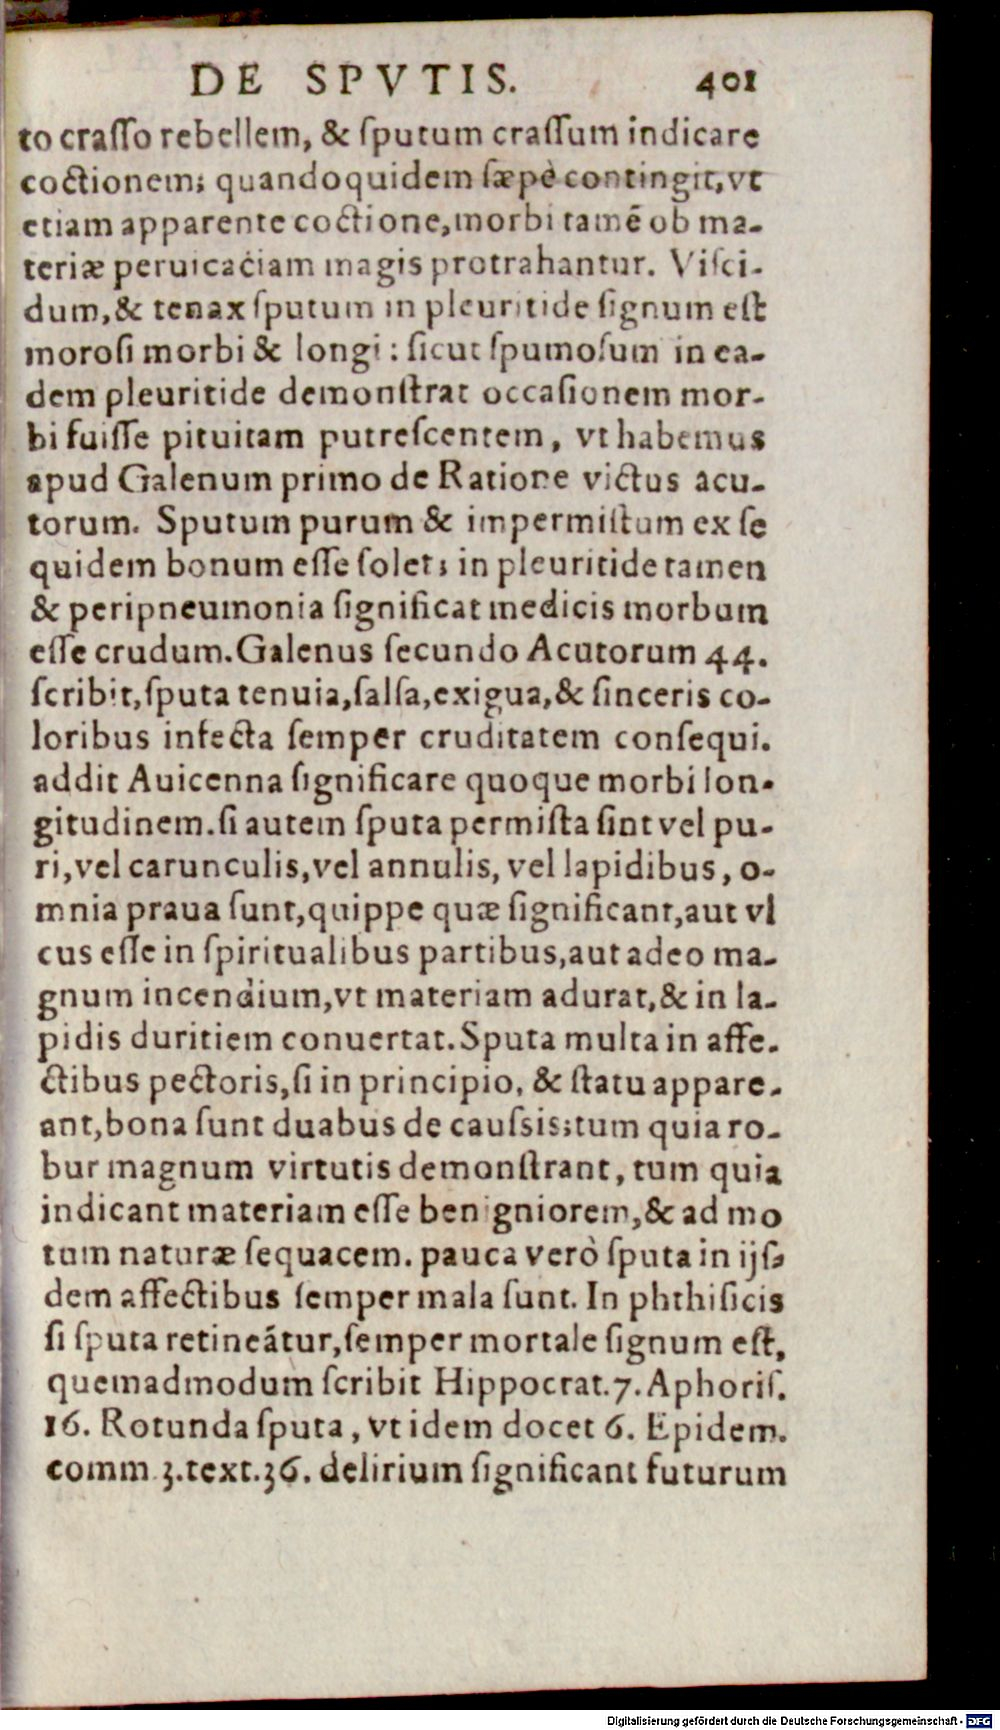 DE SPVTIS. 401
to craſſo rebellem, & ſputum craſſum indicare
coctionem; quandoquidem ſæpè contingit, vt
etiam apparente coctione, morbi tamē ob ma-
teriæ peruicaciam magis protrahantur. Viſci-
dum, & tenax ſputum in pleuritide ſignum eſt
moroſi morbi & longi: ſicut ſpumoſum in ea-
dem pleuritide demonſtrat occaſionem mor-
bi fuiſſe pituitam putreſcentem, vt habemus
apud Galenum primo de Ratione victus acu-
torum. Sputum purum & impermiſtum ex ſe
quidem bonum eſſe ſolet; in pleuritide tamen
& peripneumonia ſignificat medicis morbum
eſſe crudum. Galenus ſecundo Acutorum 44.
ſcribit, ſputa tenuia, ſalſa, exigua, & ſinceris co-
loribus infecta ſemper cruditatem conſequi.
addit Auicenna ſignificare quoque morbi lon-
gitudinem. ſi autem ſputa permiſta ſint vel pu-
ri, vel carunculis, vel annulis, vel lapidibus, o-
mnia praua ſunt, quippe quæ ſignificant, aut vl
cus eſſe in ſpiritualibus partibus, aut adeo ma-
gnum incendium, vt materiam adurat, & in la-
pidis duritiem conuertat. Sputa multa in affe-
ctibus pectoris, ſi in principio, & ſtatu appare-
ant, bona ſunt duabus de cauſsis; tum quia ro-
bur magnum virtutis demonſtrant, tum quia
indicant materiam eſſe benigniorem, & ad mo
tum naturæ ſequacem. pauca verò ſputa in ijſ-
dem affectibus ſemper mala ſunt. In phthiſicis
ſi ſputa retineātur, ſemper mortale ſignum eſt,
quemadmodum ſcribit Hippocrat. 7. Aphoriſ.
16. Rotunda ſputa, vt idem docet 6. Epidem.
comm 3. text. 36. delirium ſignificant futurum
Digitalisierung gefördert durch die Deutsche Forschungsgemeinschaft - DFG